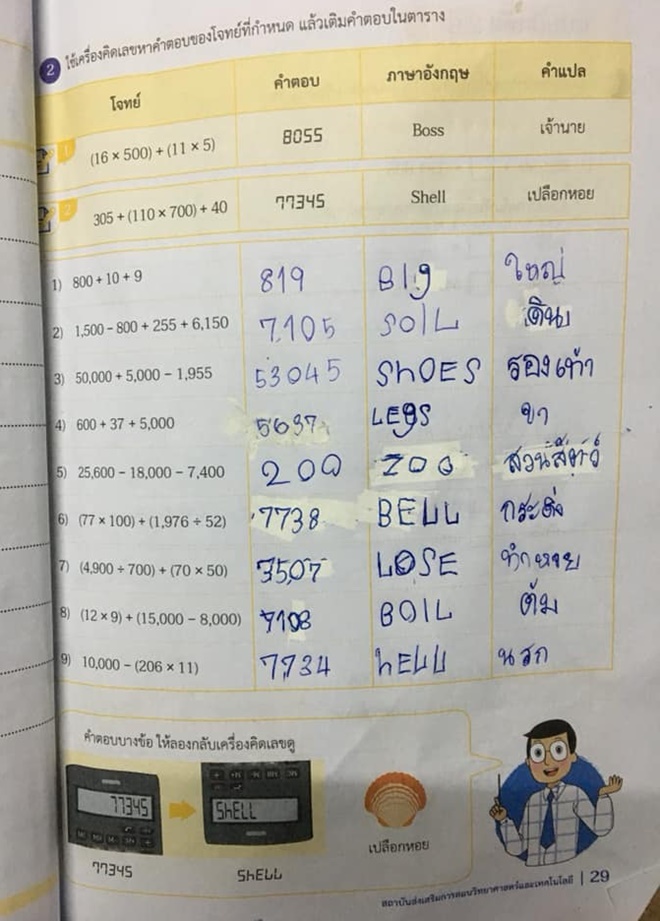 2 ใช้เครื่องคิดเลขหาคำตอบของโจทย์ที่กำหนด แล้วเติมคำตอบในตาราง
โจทย์ คำตอบ ภาษาอังกฤษ คำแปล
1 (16 × 500) + (11 × 5) 8055 Boss เจ้านาย
2 305 + (110 × 700) + 40 77345 Shell เปลือกหอย
1) 800 + 10 + 9 819 BIg ใหญ่
2) 1,500 – 800 + 255 + 6,150 7,105 SOIL ดิน
3) 50,000 + 5,000 – 1,955 53045 ShOES รองเท้า
4) 600 + 37 + 5,000 5637 LEgS ขา
5) 25,600 – 18,000 – 7,400 200 ZOO สวนสัตว์
6) (77 × 100) + (1,976 ÷ 52) 7738 BELL กระดิ่ง
7) (4,900 ÷ 700) + (70 × 50) 3507 LOSE ทำหาย
8) (12 × 9) + (15,000 – 8,000) 7108 BOIL ต้ม
9) 10,000 – (206 × 11) 7734 hELL นรก
คำตอบบางข้อ ให้ลองกลับเครื่องคิดเลขดู
77345 ShELL
77345 ShELL เปลือกหอย
สถาบันส่งเสริมการสอนวิทยาศาสตร์และเทคโนโลยี | 29